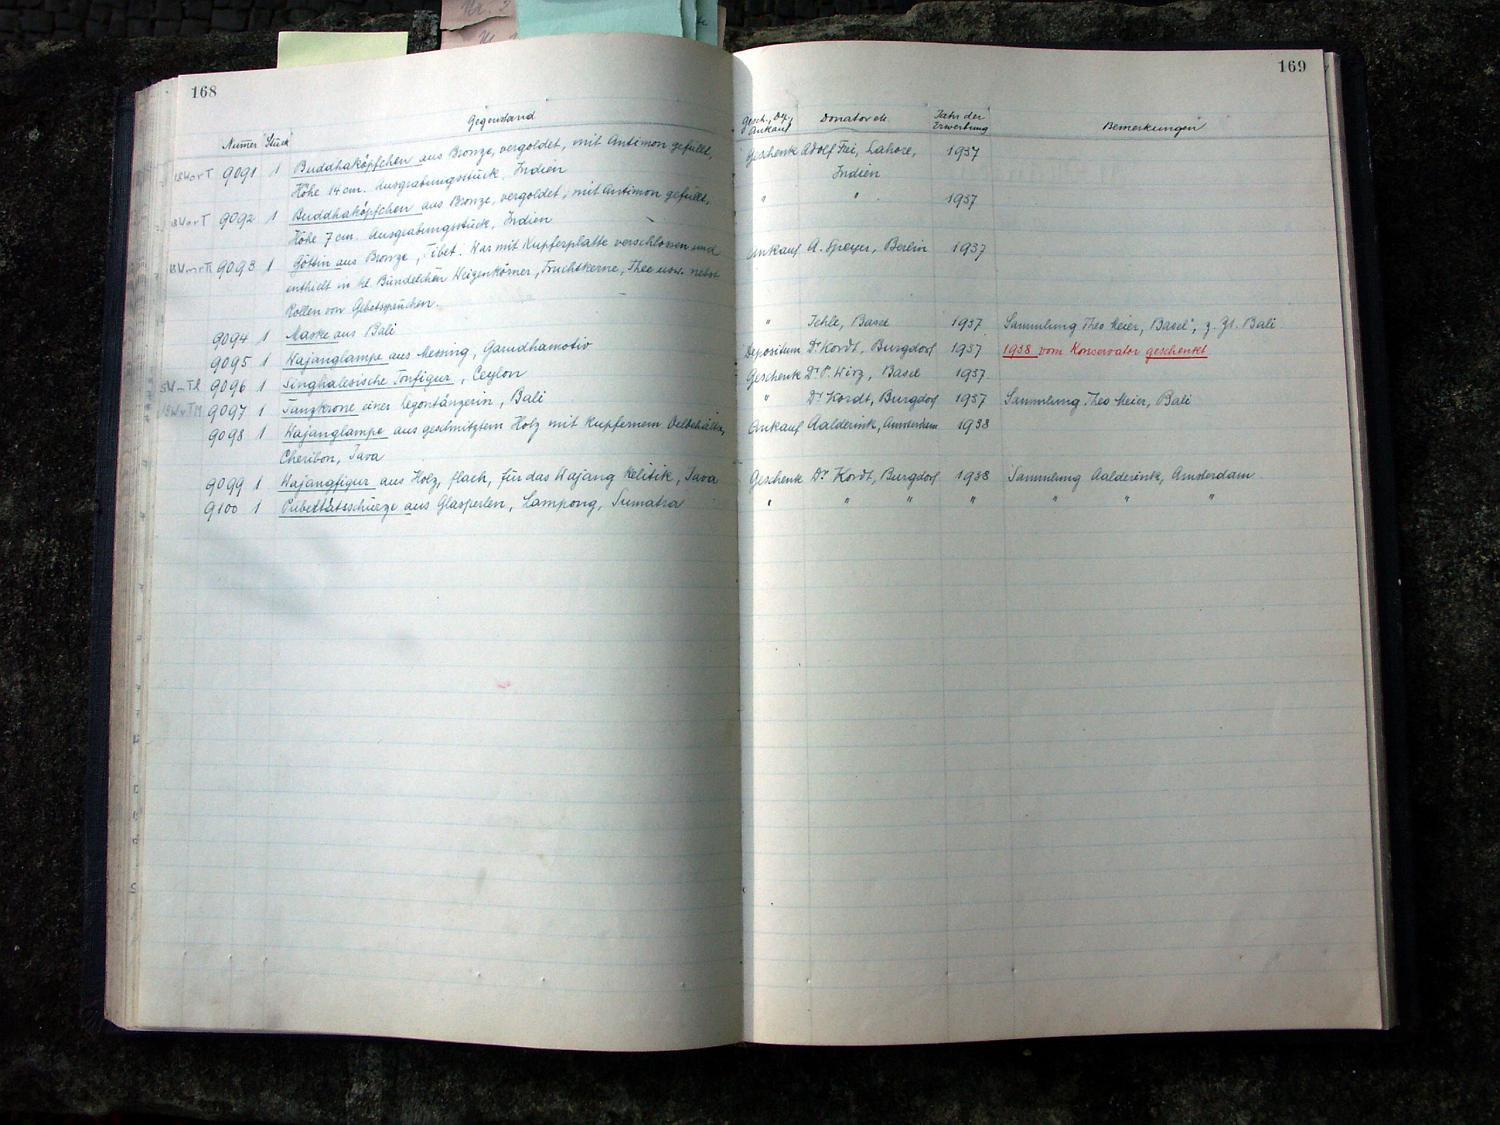 168
Gegenstand
Numer Stück
9091 1 Buddhaköpfchen aus Bronze, vergoldet, mit Antimon gefüllt,
Höhe 14 cm. Ausgrabungsstück, Indien
9092 1 Buddhaköpfchen aus Bronze, vergoldet, mit Antimon gefüllt,
Höhe 7 cm. Ausgrabungsstück, Indien
9093 1 Göttin aus Bronze, Tibet. War mit Kupferplatte verschlossen und
enthielt in kl. Bündelchen Weizenkörner, Fruchtkerne, Thee usw. nebst
Rollen von Gebetssprüchen.
9094 1 Maske aus Bali
9095 1 Wajanglampe aus Messing, Garudhamotiv
9096 1 Singhalesische Tonfigur, Ceylon
9097 1 Tanzkrone einer Legontänzerin, Bali
9098 1 Wajanglampe aus geschnitztem Holz mit kupfernem Oelbehälter,
Cheribon, Java
9099 1 Wajangfigur aus Holz, flach, für das Wajang Kelitik, Java
9100 1 Pubertätsschürze aus Glasperlen, Lampong, Sumatra
169
Gesch., Dep., Ankauf
Donator etc.
Jahr der Erwerbung
Bemerkungen
Geschenk Adolf Frei, Lahore, 1937
Indien
" " 1937
Ankauf A. Speyer, Berlin 1937
" Jehle, Basel 1937 Sammlung Theo Meier, Basel, z. Zt. Bali
Depositum Dr Kordt, Burgdorf 1937 1938 vom Konservator geschenkt
Geschenk Dr P. Wirz, Basel 1937
" Dr Kordt, Burgdorf 1937 Sammlung Theo Meier, Bali
Ankauf Aalderink, Amsterdam 1938
Geschenk Dr Kordt, Burgdorf 1938 Sammlung Aalderink, Amsterdam
" " " " " " "